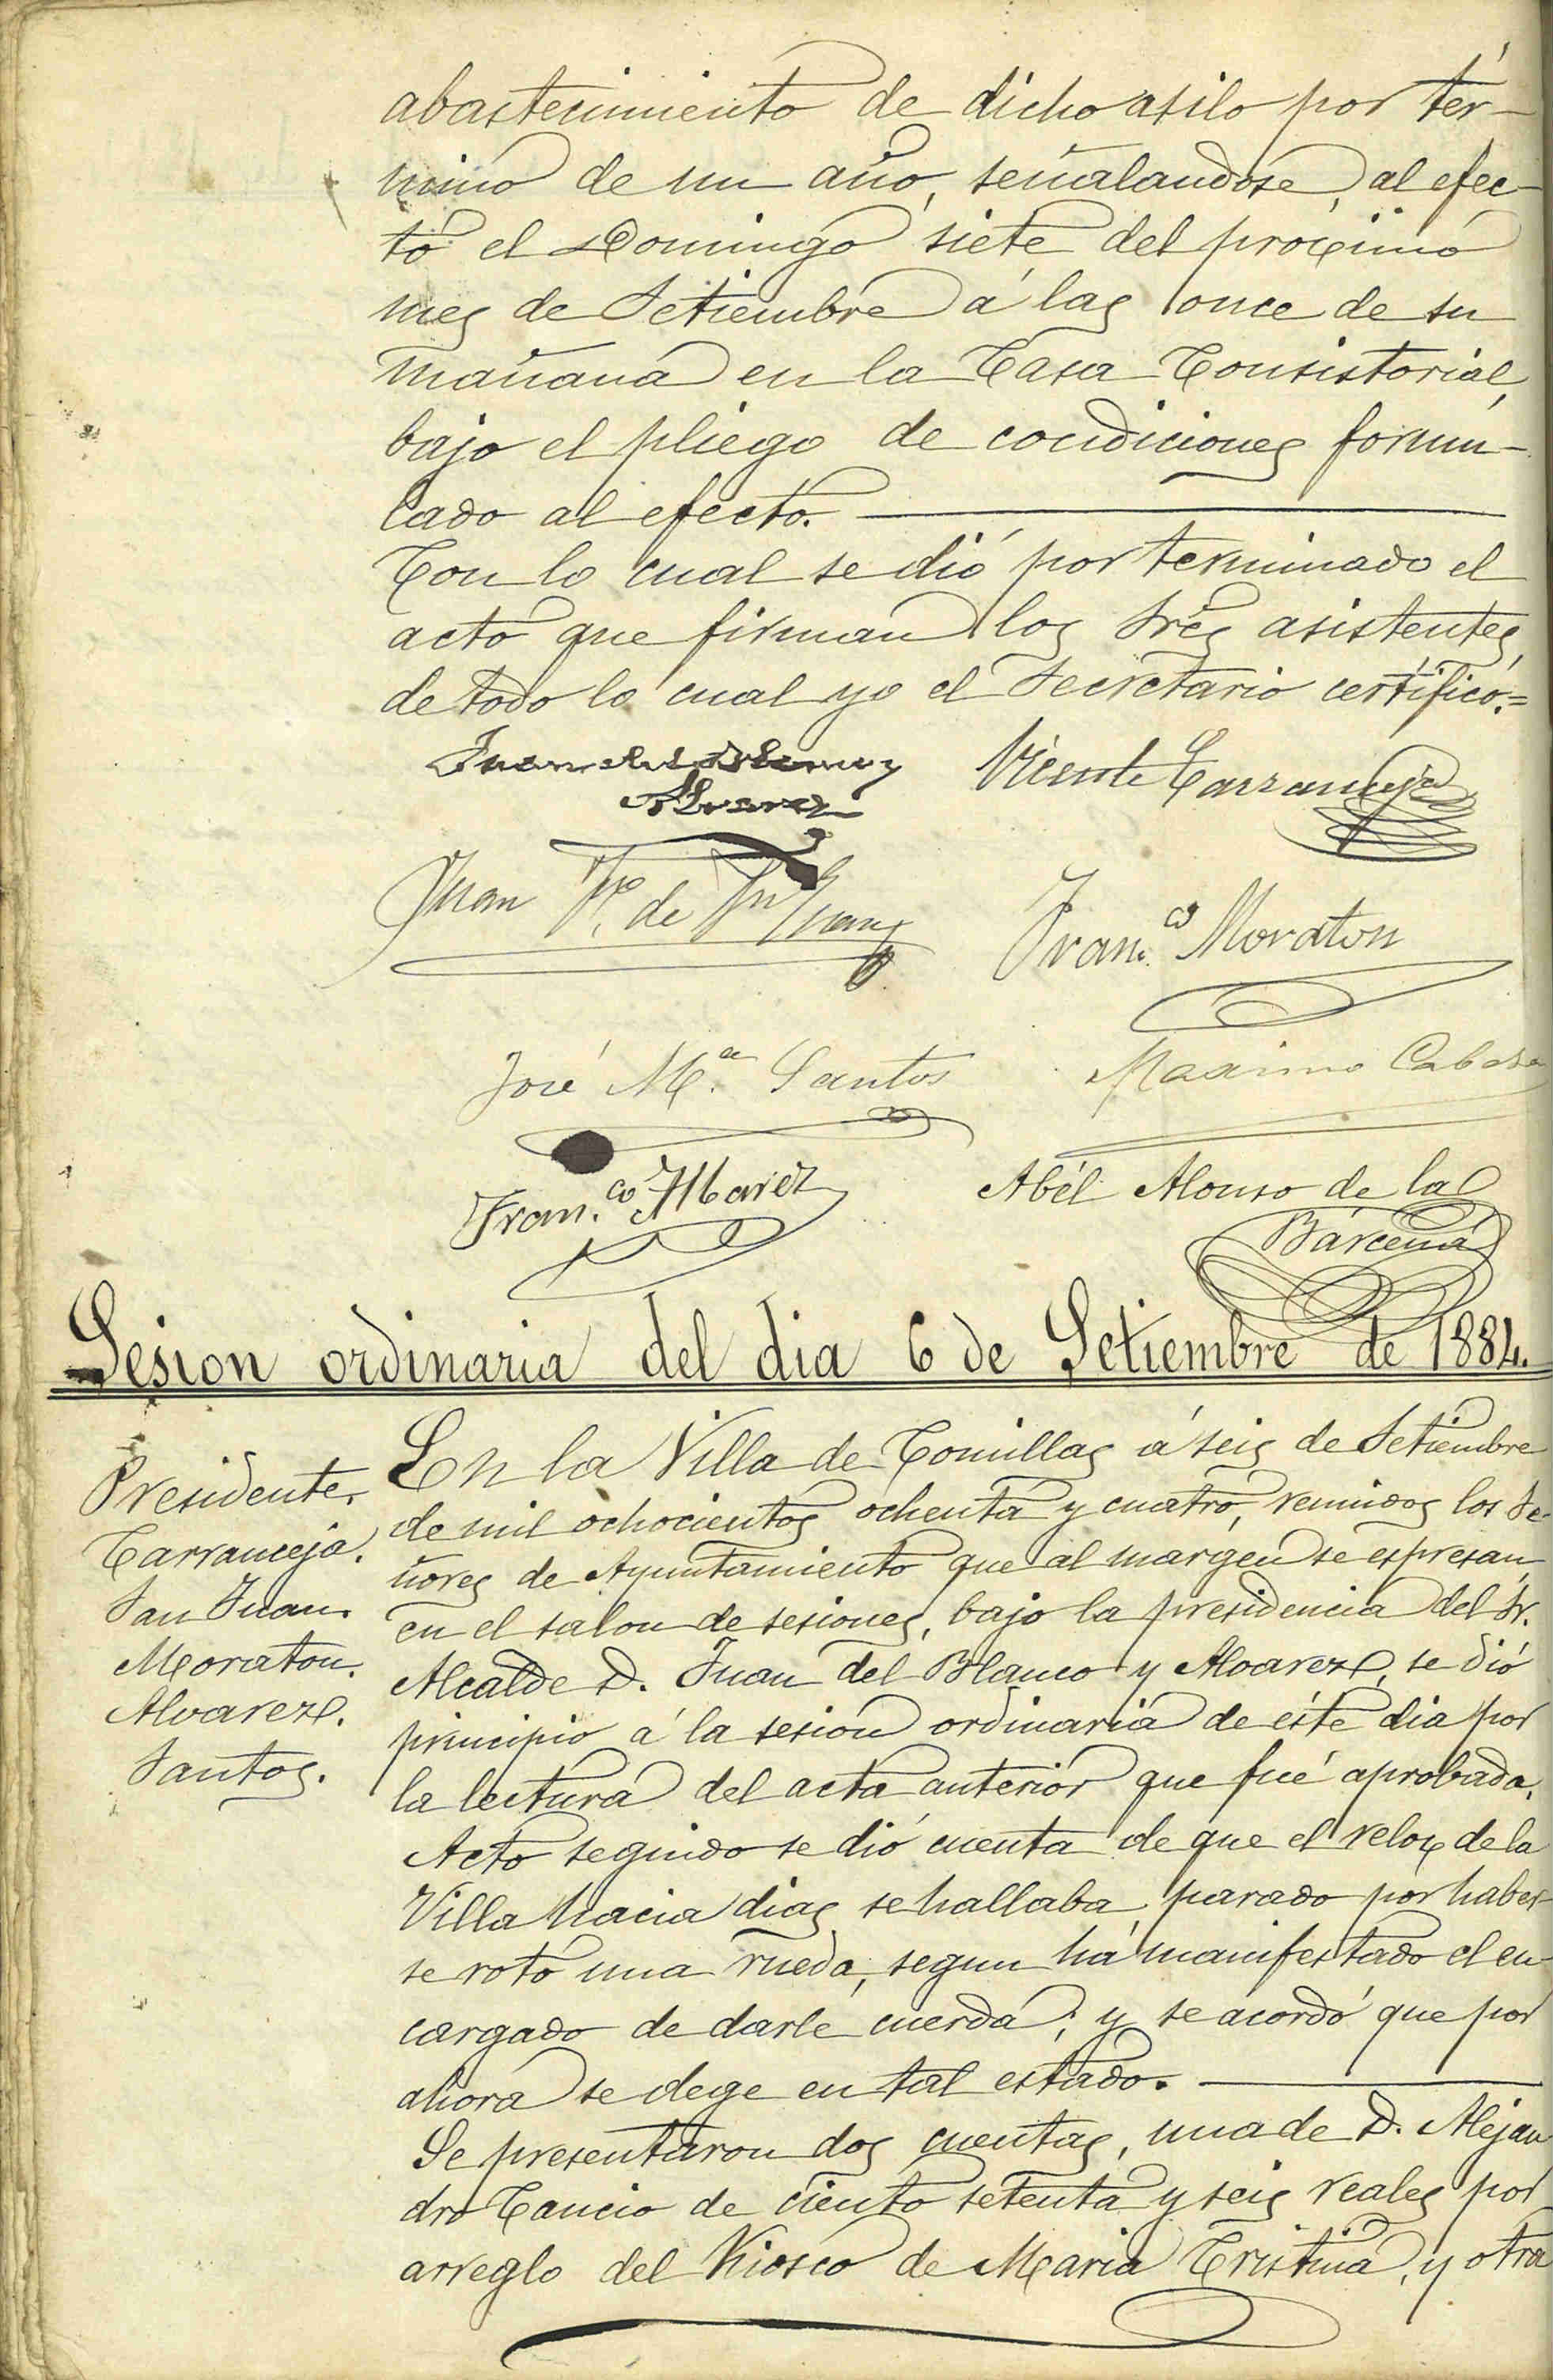 abastecimiento de dicho asilo por tér-
mino de un año, señalandose, al efec-
to el Domingo siete del próximo
mes de Setiembre á las once de su
mañana en la Casa Consistorial,
bajo el pliego de condiciones formu-
lado al efecto.
Con lo cual se dió por terminado el
acto que firman los Sres asistentes,
de todo lo cual yo el Secretario certifico.=
Juan del Blanco y Vicente Carranceja
Alvarez
Juan de Sn Juan Franco Moraton
José Ma. Santos Maximo Cabeza
Fran.co Alvarez Abél Alonso de la
Bárcena
Sesion ordinaria del dia 6 de Setiembre de 1884.
Presidente.
Carranceja.
San Juan.
Moraton.
Alvarez.
Santos.
En la Villa de Comillas á seis de Setiembre
de mil ochocientos ochenta y cuatro, reunidos los Se-
ñores de Ayuntamiento que al margen se espresan
en el salon de sesiones, bajo la presidencia del Sr.
Alcalde D. Juan del Blanco y Alvarez, se dió
principio á la sesion ordinaria de éste dia por
la lectura del acta anterior que fué aprobada.
Acto seguido se dió cuenta de que el relox de la
Villa hacia dias se hallaba parado por haber-
se roto una rueda, segun há manifestado el en-
cargado de darle cuerda; y se acordó que por
ahora se dege en tal estado.
Se presentaron dos cuentas, una de D. Alejan
dro Cancio de ciento setenta y seis reales por
arreglo del Kiosco de Maria Cristina, y otra